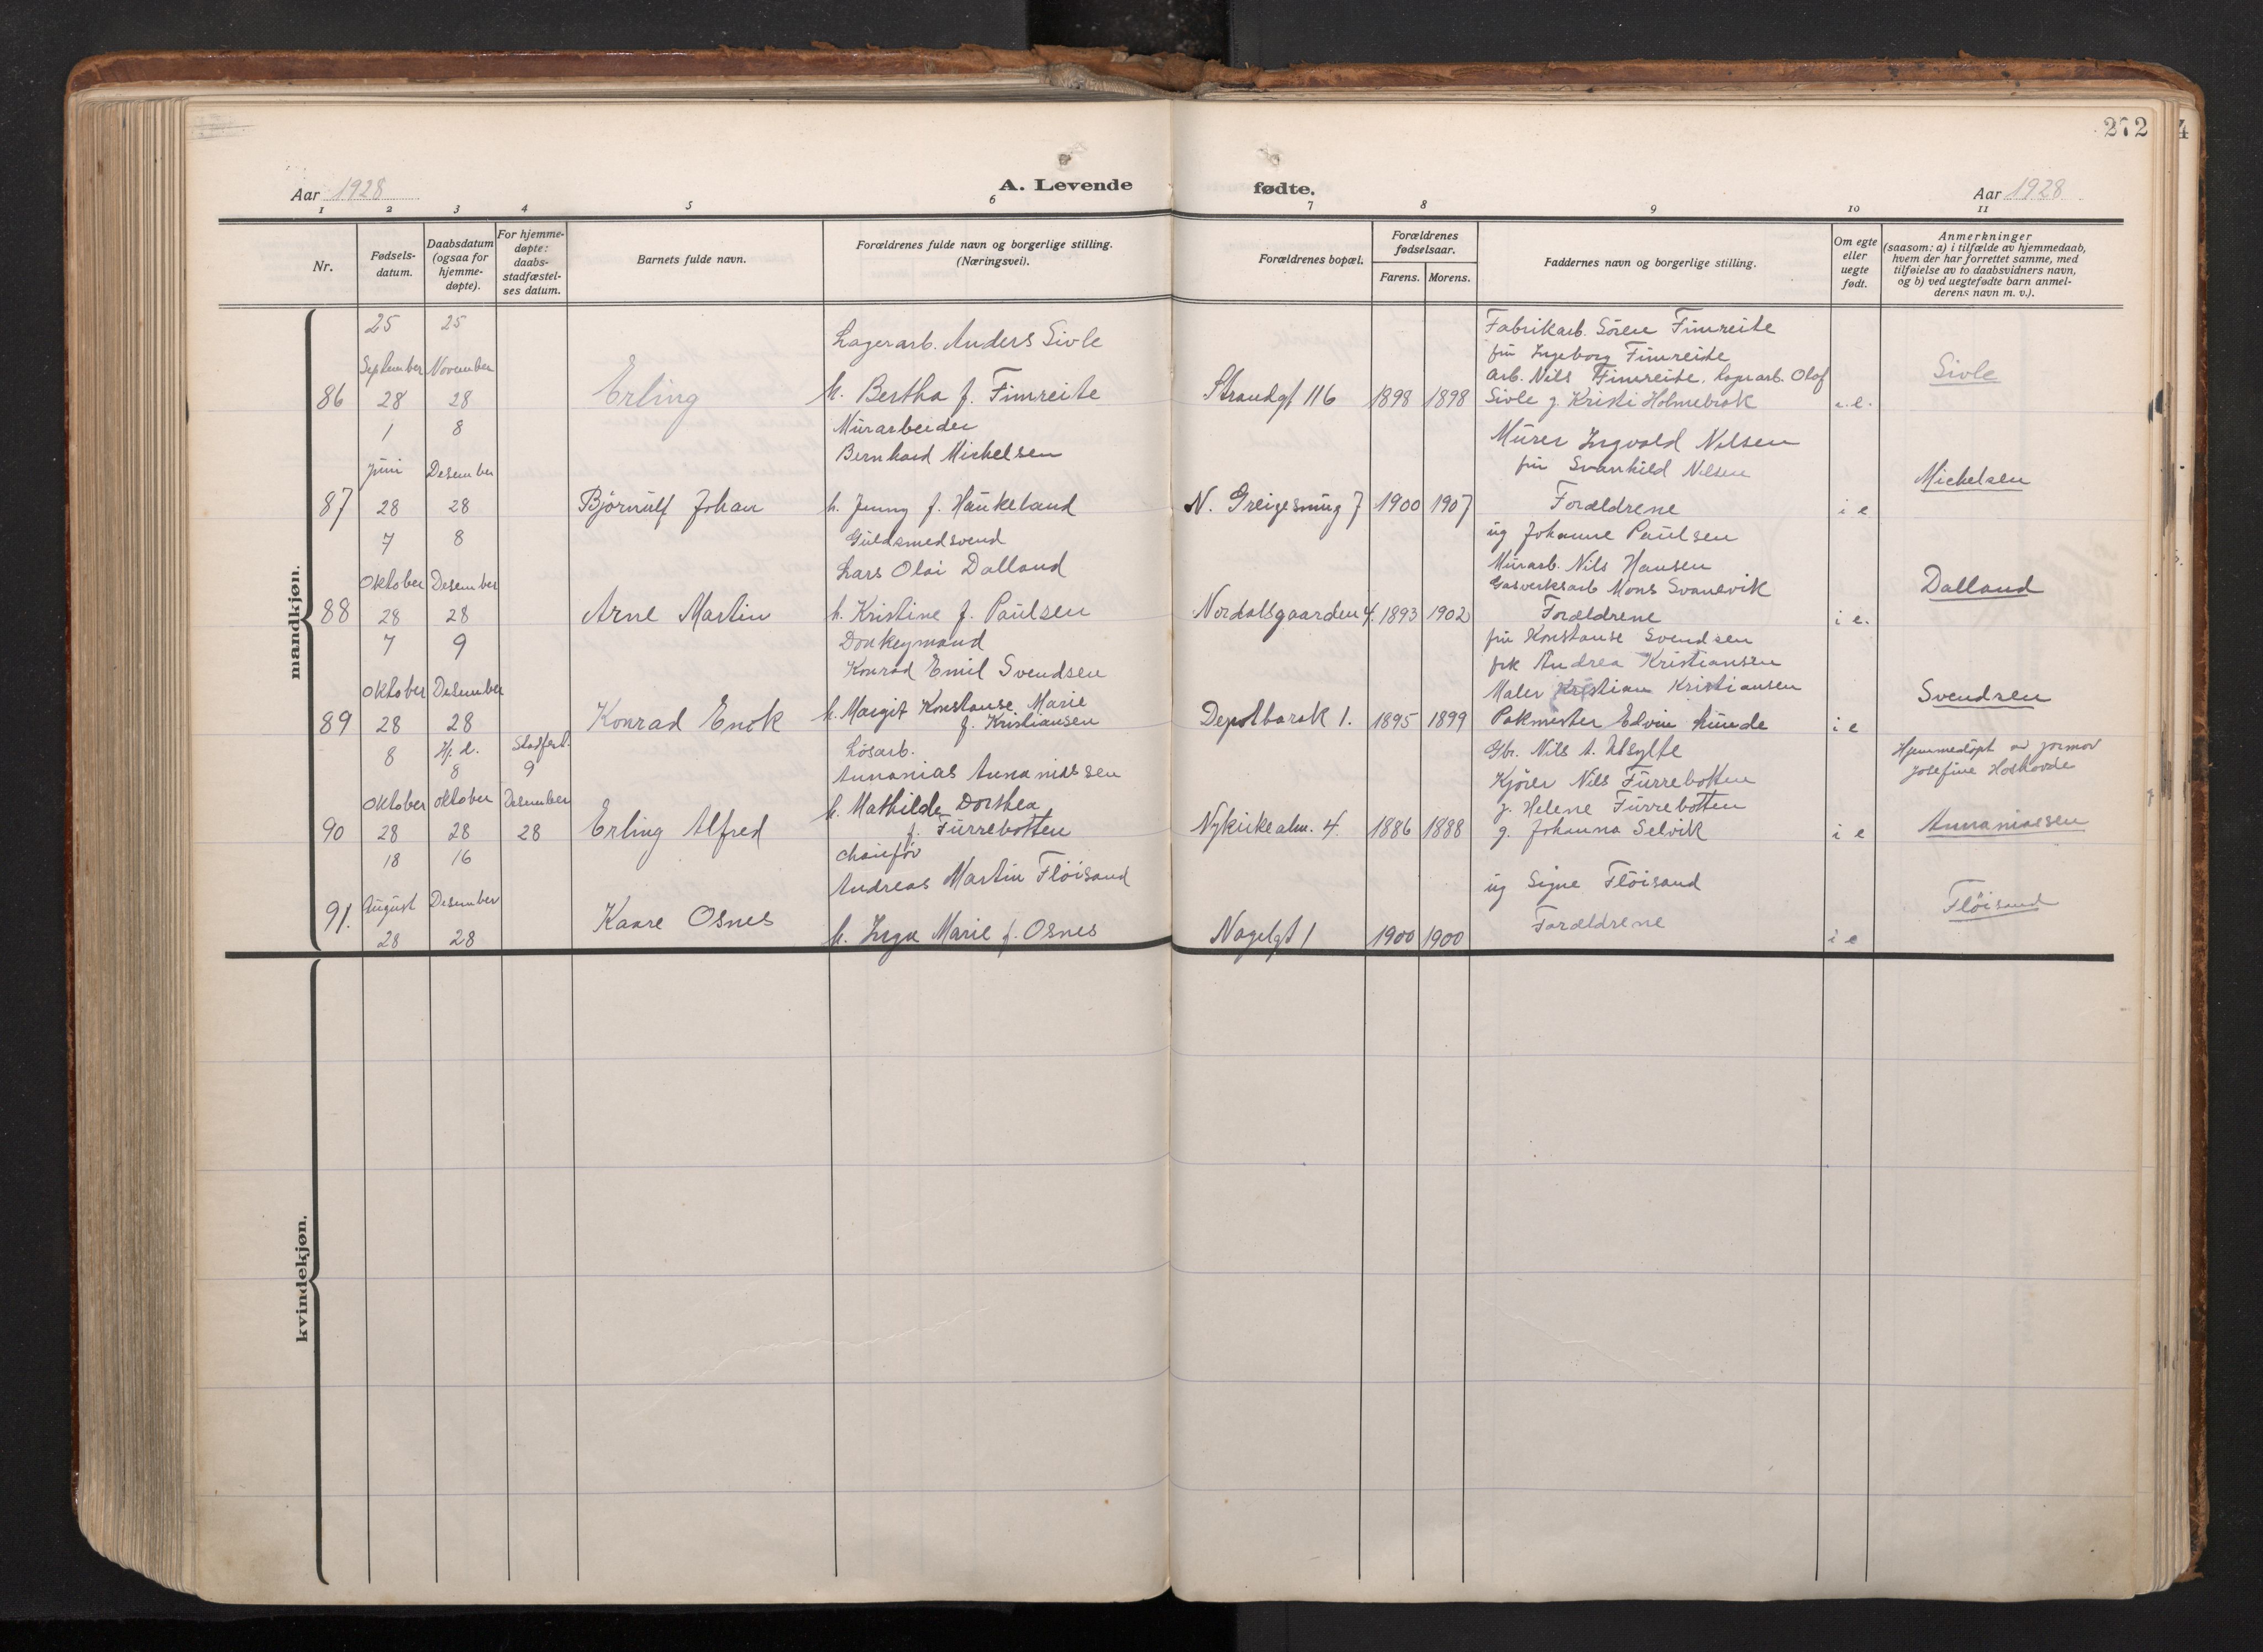 272
4
A. Levende fødte.
Aar 1928
Aar 1928
1 2 3 4 5 6 7 8 9 10 11
Nr.
Fødsels-
datum.
Daabsdatum
(ogsaa for
hjemme-
døpte).
For hjemme-
døpte:
daabs-
stadfæstel-
ses datum.
Barnets fulde navn.
Forældrenes fulde navn og borgerlige stilling.
(Næringsvei).
Forældrenes bopæl.
Forældrenes
fødselsaar.
Farens. Morens.
Faddernes navn og borgerlige stilling.
Om egte
eller
uegte
født.
Anmerkninger
(saasom: a) i tilfælde av hjemmedaab,
hvem der har forrettet samme, med
tilføielse av to daabsvidners navn,
og b) ved uegtefødte barn anmel-
derens navn m. v.).
mandkjøn.
86
25
September
28
25
November
28
Erling
Lagerarb. Anders Sivle
h. Bertha f. Fimreite
Strandgt 116
1898 1898
Fabrikarb. Søren Fimreite
fru Ingeborg Fimreite
arb. Nils Fimreite. lagerarb. Olof
Sivle g. Kristi Holmebrok
i e.
Sivle
87
1
Juni
28
8
Desember
28
Bjørnulf Johan
Murarbeider
Bernhard Michelsen
h. Jenny f. Haukeland
N. Greigesmug 7
1900 1907
Murer Ingvald Nilsen
fru Svanhild Nilsen
Forældrene
i e
Michelsen
88
7
Oktober
28
8
Desember
28
Arne Martin
Guldsmedsvend
Lars Olai Dalland
h. Kristine f. Paulsen
Nordalsgaarden 4.
1893 1902
ug Johanne Paulsen
Murarb. Nils Hansen
Gasverksarb Mons Svanevik
Forældrene
i e.
Dalland
89
7
Oktober
28
9
Desember
28
Konrad Enok
Donkeymand
Konrad Emil Svendsen
h. Margit Konstanse Marie
f. Kristiansen
Depotbarak 1.
1895 1899
fru Konstanse Svendsen
frk Andrea Kristiansen
Maler Kristian Kristiansen
Pakmester Edvin Lunde
i e
Svendsen
90
8
Oktober
28
Hj. d.
8
Oktober
28
Stadfest.
9
Desember
28
Erling Alfred
Løsarb.
Annanias Annaniassen
h. Mathilde Dorthea
f. Furrebotten
Nykirkealm. 4.
1886 1888
Gbr. Nils A.
Kjører Nils Furrebotten
g. Helene Furrebotten
g. Johanna Selvik
i e
Hjemmedøpt av jormor
Josefine
Annaniasen
91.
18
August
28
16
Desember
28
Kaare Osnes
Chauffør
Andreas Martin Fløisand
h. Inga Marie f. Osnes
Nagelgt 1
1900 1900
ug Signe Fløisand
Forældrene
i e
Fløisand
kvindekjøn.